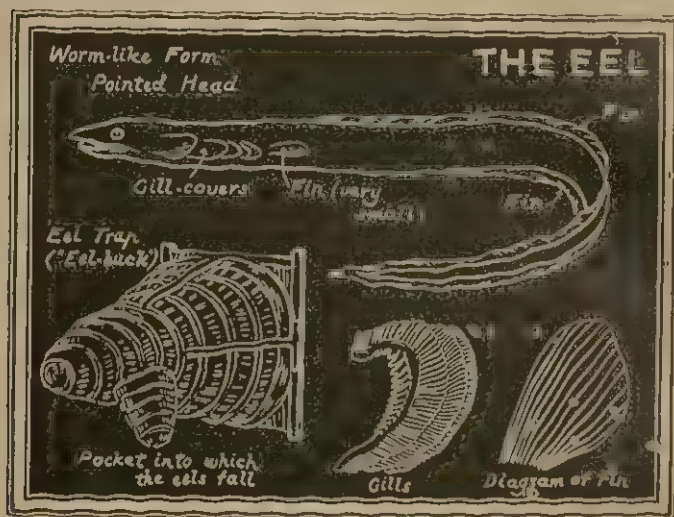 Worm-like Form
Pointed Head
THE EEL
Gill-covers
Fin (very
Fin
Eel Trap
("Eel-buck")
Pocket into which
the eels fall
Gills
Diagram of Fin